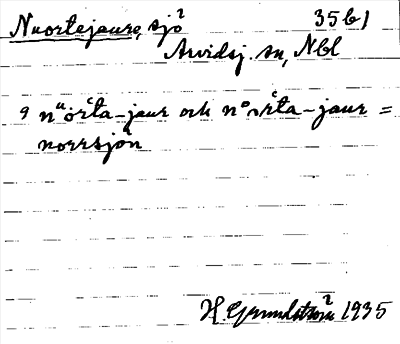 Nuortejaure, sjö² 35b1
Arvidsj. sn, Nbl
9 nᵘo̤rʽta-jaur och nᵒo̤rʽta-jaur =
norrsjön
H Grundström² 1935